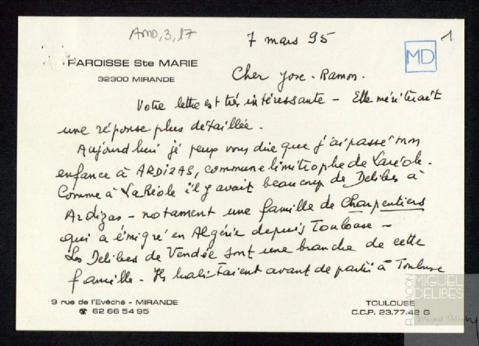 AMD,3,17
7 mars 95
MD
1
PAROISSE Ste MARIE
32300 MIRANDE
Cher Jose-Ramon.
Votre lettre est très intéressante - Elle mériterait
une réponse plus détaillée.
Aujourd'hui je peux vous dire que j'ai passé mon
enfance à ARDIZAS, commune limitrophe de Laréole.
Comme à LaRéole il y avait beaucoup de Delibes à
Ardizas - notament une famille de Charpentiers
qui a émigré en Algérie depuis Toulouse -
Les Delibes de Vendée sont une branche de cette
famille. Ils habitaient avant de partir à Toulouse
9 rue de l'Evêché - MIRANDE
☎ 62 66 54 95
TOULOUSE
C.C.P. 23.77.42 G
MIGUEL
DELIBES